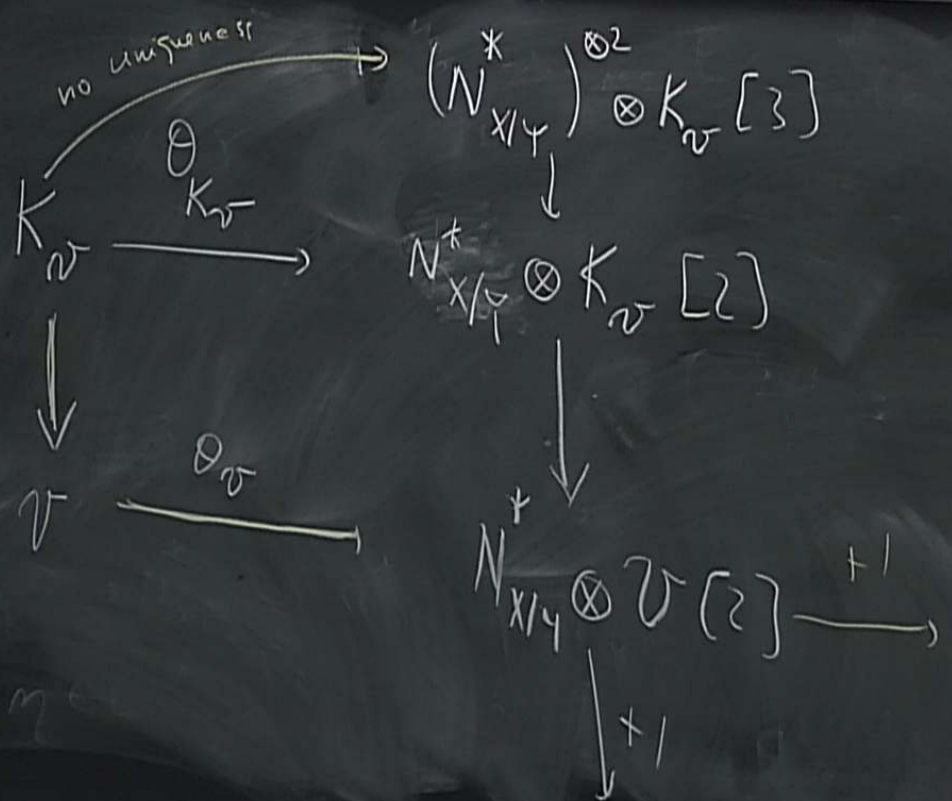 no uniqueness
(N*_{X/Y})^{⊗2} ⊗ K_v [3]
θ_{K_v}
K_v
N*_{X/Y} ⊗ K_v [2]
θ_v
v
N*_{X/Y} ⊗ v [2]
+1
+1